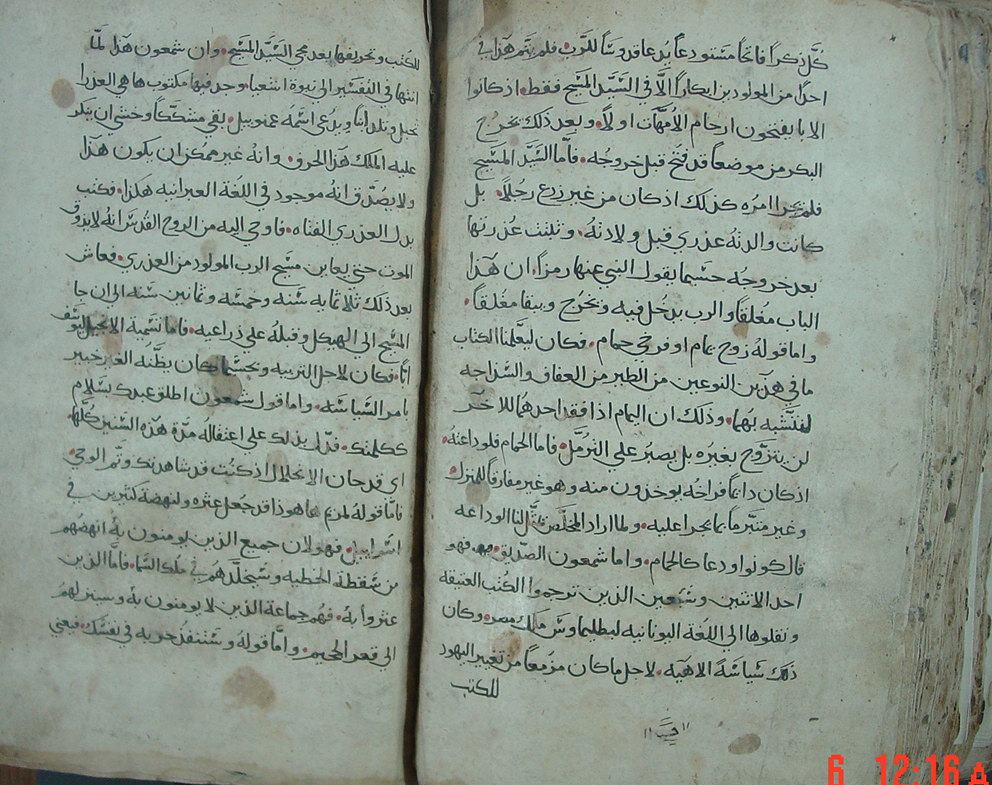 كل ذكراً فاتحاً مستودعاً يدعا قدوساً للرب. فلم يتم هذا في
احداً من المولودين ابكاراً الا في السيد المسيح فقط. اذ كانوا
الابا يفتحون ارحام الامهات اولاً. وبعد ذلك تخرج
البكر من موضعاً قد فتح قبل خروجه. فأما السيد المسيح
فلم يكرا امره كذلك اذ كان من غير زرع رجلاً. بل
كانت والدته عذري قبل ولادته. وثبتت عذرتها
بعد خروجه حسبما يقول النبي عنها رمزاً. ان هذا
الباب مغلقاً والرب يدخل فيه ويخرج ويبقا مغلقاً.
واما قوله زوج يمام او فرخي حمام. فكان ليعلمنا الكتاب
ما في هذين النوعين من الطير من العفاف والسذاجه
لنتشبه بهما. وذلك ان اليمام اذا فقد احدهما للاخر
لن يتزوج بغيره بل يصبر علي الترمل. فاما الحمام فلوداعته.
اذ كان دايماً فراخه يوخذون منه وهو غير مفارقاً للمنزل
وغير متبرماً بما يجرا عليه. ولما اراد المخلص يمثل لنا الوداعه
قال كونوا ودعا كالحمام. واما شمعون الصديق فهو
احد الاثنين وسبعين الذين ترجموا الكتب العتيقة
ونقلوها الي اللغة اليونانيه لبطليماوس ملك مصر. وكان
ذلك سياسة الاهيه. لاجل ما كان مزمعاً من تغيير اليهود
للكتب
للكتب وتحريفها بعد مجي السيد المسيح. وان شمعون هذا لما
انتها في التفسير الي نبوة اشعيا وجد فيها مكتوب ها هي العذرا
تحبل وتلد ابناً ويدعي اسمه عمنوييل. بقي مشككاً وخشي ان ينكر
عليه الملك هذا الحرف. وانه غير ممكن ان يكون هذا
ولا يصدق انه موجود في اللغة العبرانيه هكذا. فكتب
بدل العذري الفتاه. فاوحي اليه من الروح القدس انه لا يذوق
الموت حتي يعاين مسيح الرب المولود من العذري. فعاش
بعد ذلك ثلاثمايه سنه وخمسه وثمانين سنه الي ان جا
المسيح الي الهيكل وقبله علي ذراعيه. فاما تسمية الانجيل ليوسف
اباً. فكان لاجل التربيه وبحسبما كان يظنه الغير خبير
بامر السياسه. واما قول شمعون اطلق عبدك بسلام
ككلمتك. فدل بذلك علي اعتقاله مدة هذه السنين كلها.
اي قد حان الانحلال اذ كنت قد شاهدتك وتم الوحي
فاما قوله لمريم ها هوذا قد جعل عثره ولنهضة كثيرين في
اسراييل. فهو لان جميع الذين يومنون به انهضهم
من سقطة الخطيه وسيخلدهم في ملك السما. فاما الذين
عثروا به. فهم جماعة الذين لا يومنون به وسينزلهم
الي قعر الجحيم. واما قوله وستنفذ حربه في نفسك. فيعني